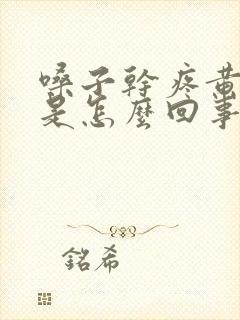 嗓子幹疼黃
是怎麼回事
銘希